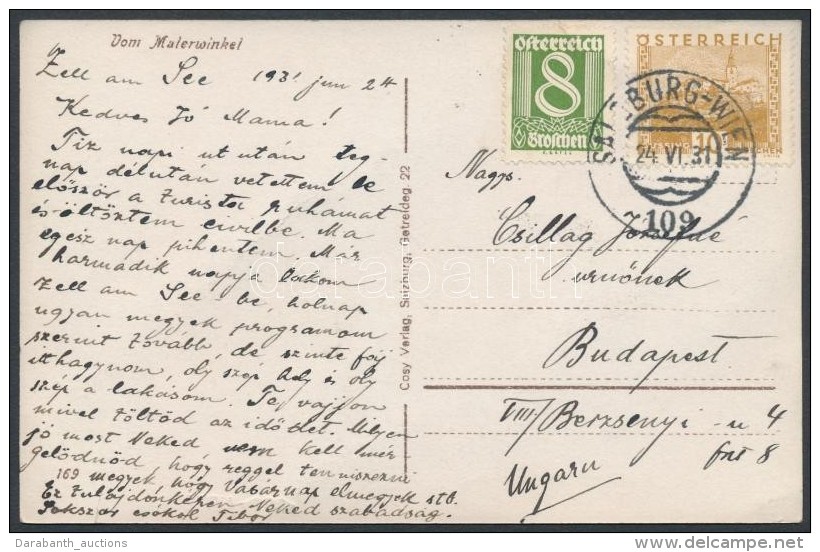 Vom Malerwinkel
Zell am See 1931 jun 24
Kedves Jó Mama!
Tiz napi ut után teg-
nap délután vetettem le
először a turista ruhámat
és öltöztem civilbe. Ma
egész nap pihentem. Már
harmadik napja lakom
Zell am See be, holnap
ugyan megyek programom
szerint tovább, de szinte fáj
itthagynom, oly szép hely és oly
szép a lakásom. Te vajjon
mivel töltöd az idődet. Milyen
jó most Neked, nem kell mér-
gelődnöd, hogy reggel teniszezni
megyek, hogy Vasárnap elmegyek stb.
Ez tulajdonképen Neked szabadság.
Sokszor csókol Tibor
169
Cosy Verlag, Salzburg, Getreideg. 22
Österreich
8
Groschen
ÖSTERREICH
10
SALZBURG-WIEN
24.VI.31
109
Nagys.
Csillag Józsefné
urnőnek
Budapest.
VIII/ Berzsenyi-u 4
fnt 8
Ungarn
darabanth
Darabanth_auctions
delcampe.net